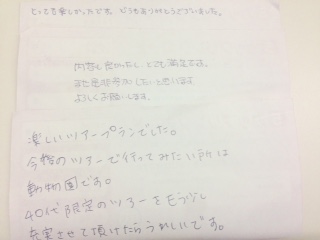 とっても楽しかったです。どうもありがとうございました。
内容も良かったし とても満足です。
また是非参加したいと思います
よろしくお願いします。
楽しいツアープランでした。
今後のツアーで行ってみたい所は
動物園です。
40代限定のツアーをもう少し
充実させて頂けたらうれしいです。